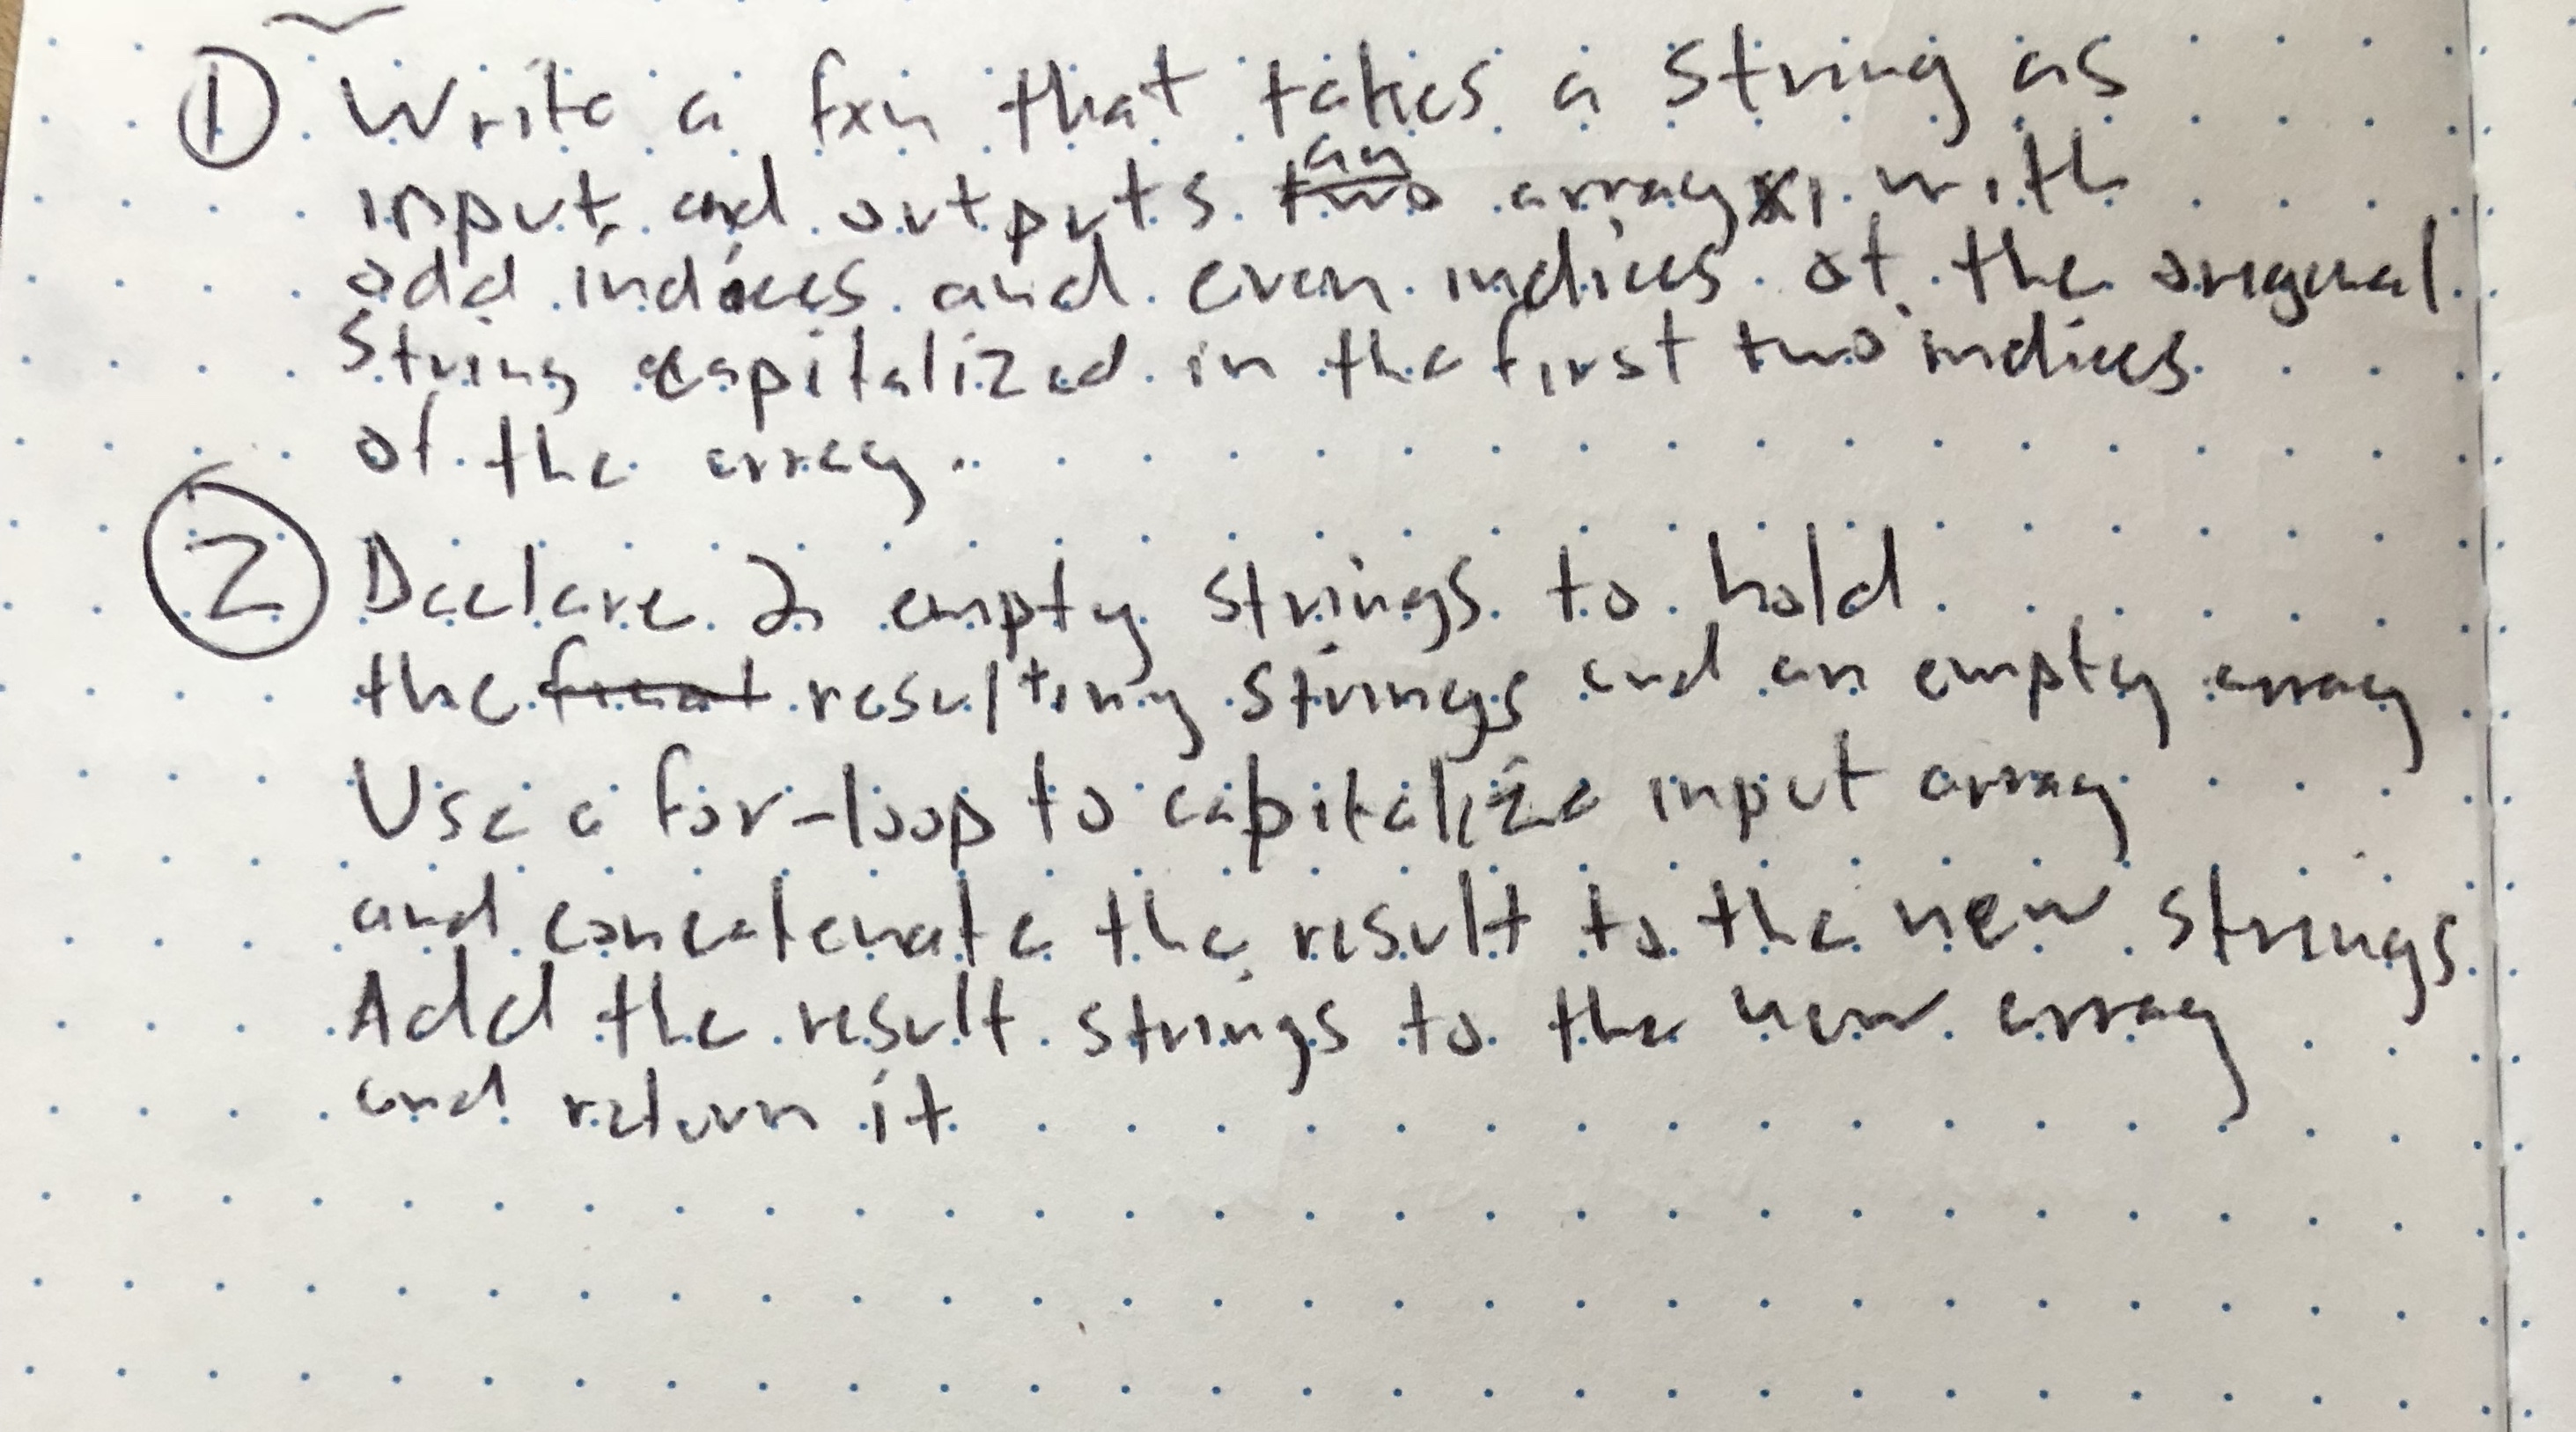 ① Write a fxn that takes a string as
input, and outputs an array, with
odd indices and even indices of the original
string capitalized in the first two indices
of the array.
② Declare 2 empty strings to hold
the resulting strings and an empty array
Use a for-loop to capitalize input array
and concatenate the result to the new strings
Add the result strings to the new array
and return it